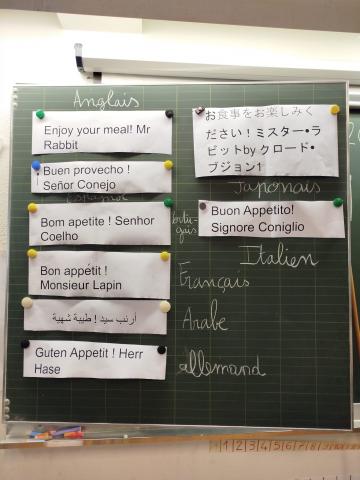 Anglais
Enjoy your meal! Mr
Rabbit
Buen provecho !
Señor Conejo
Espagnol
Bom apetite ! Senhor
Coelho
portu-
gais
Bon appétit !
Monsieur Lapin
Français
أرنب سيد ! طيبة شهية
Arabe
Guten Appetit ! Herr
Hase
allemand
お食事をお楽しみく
ださい！ミスター•ラ
ビットby クロード•
ブジョン1
Japonais
Buon Appetito!
Signore Coniglio
Italien
1 2 3 4 5 6 7 8 9 10